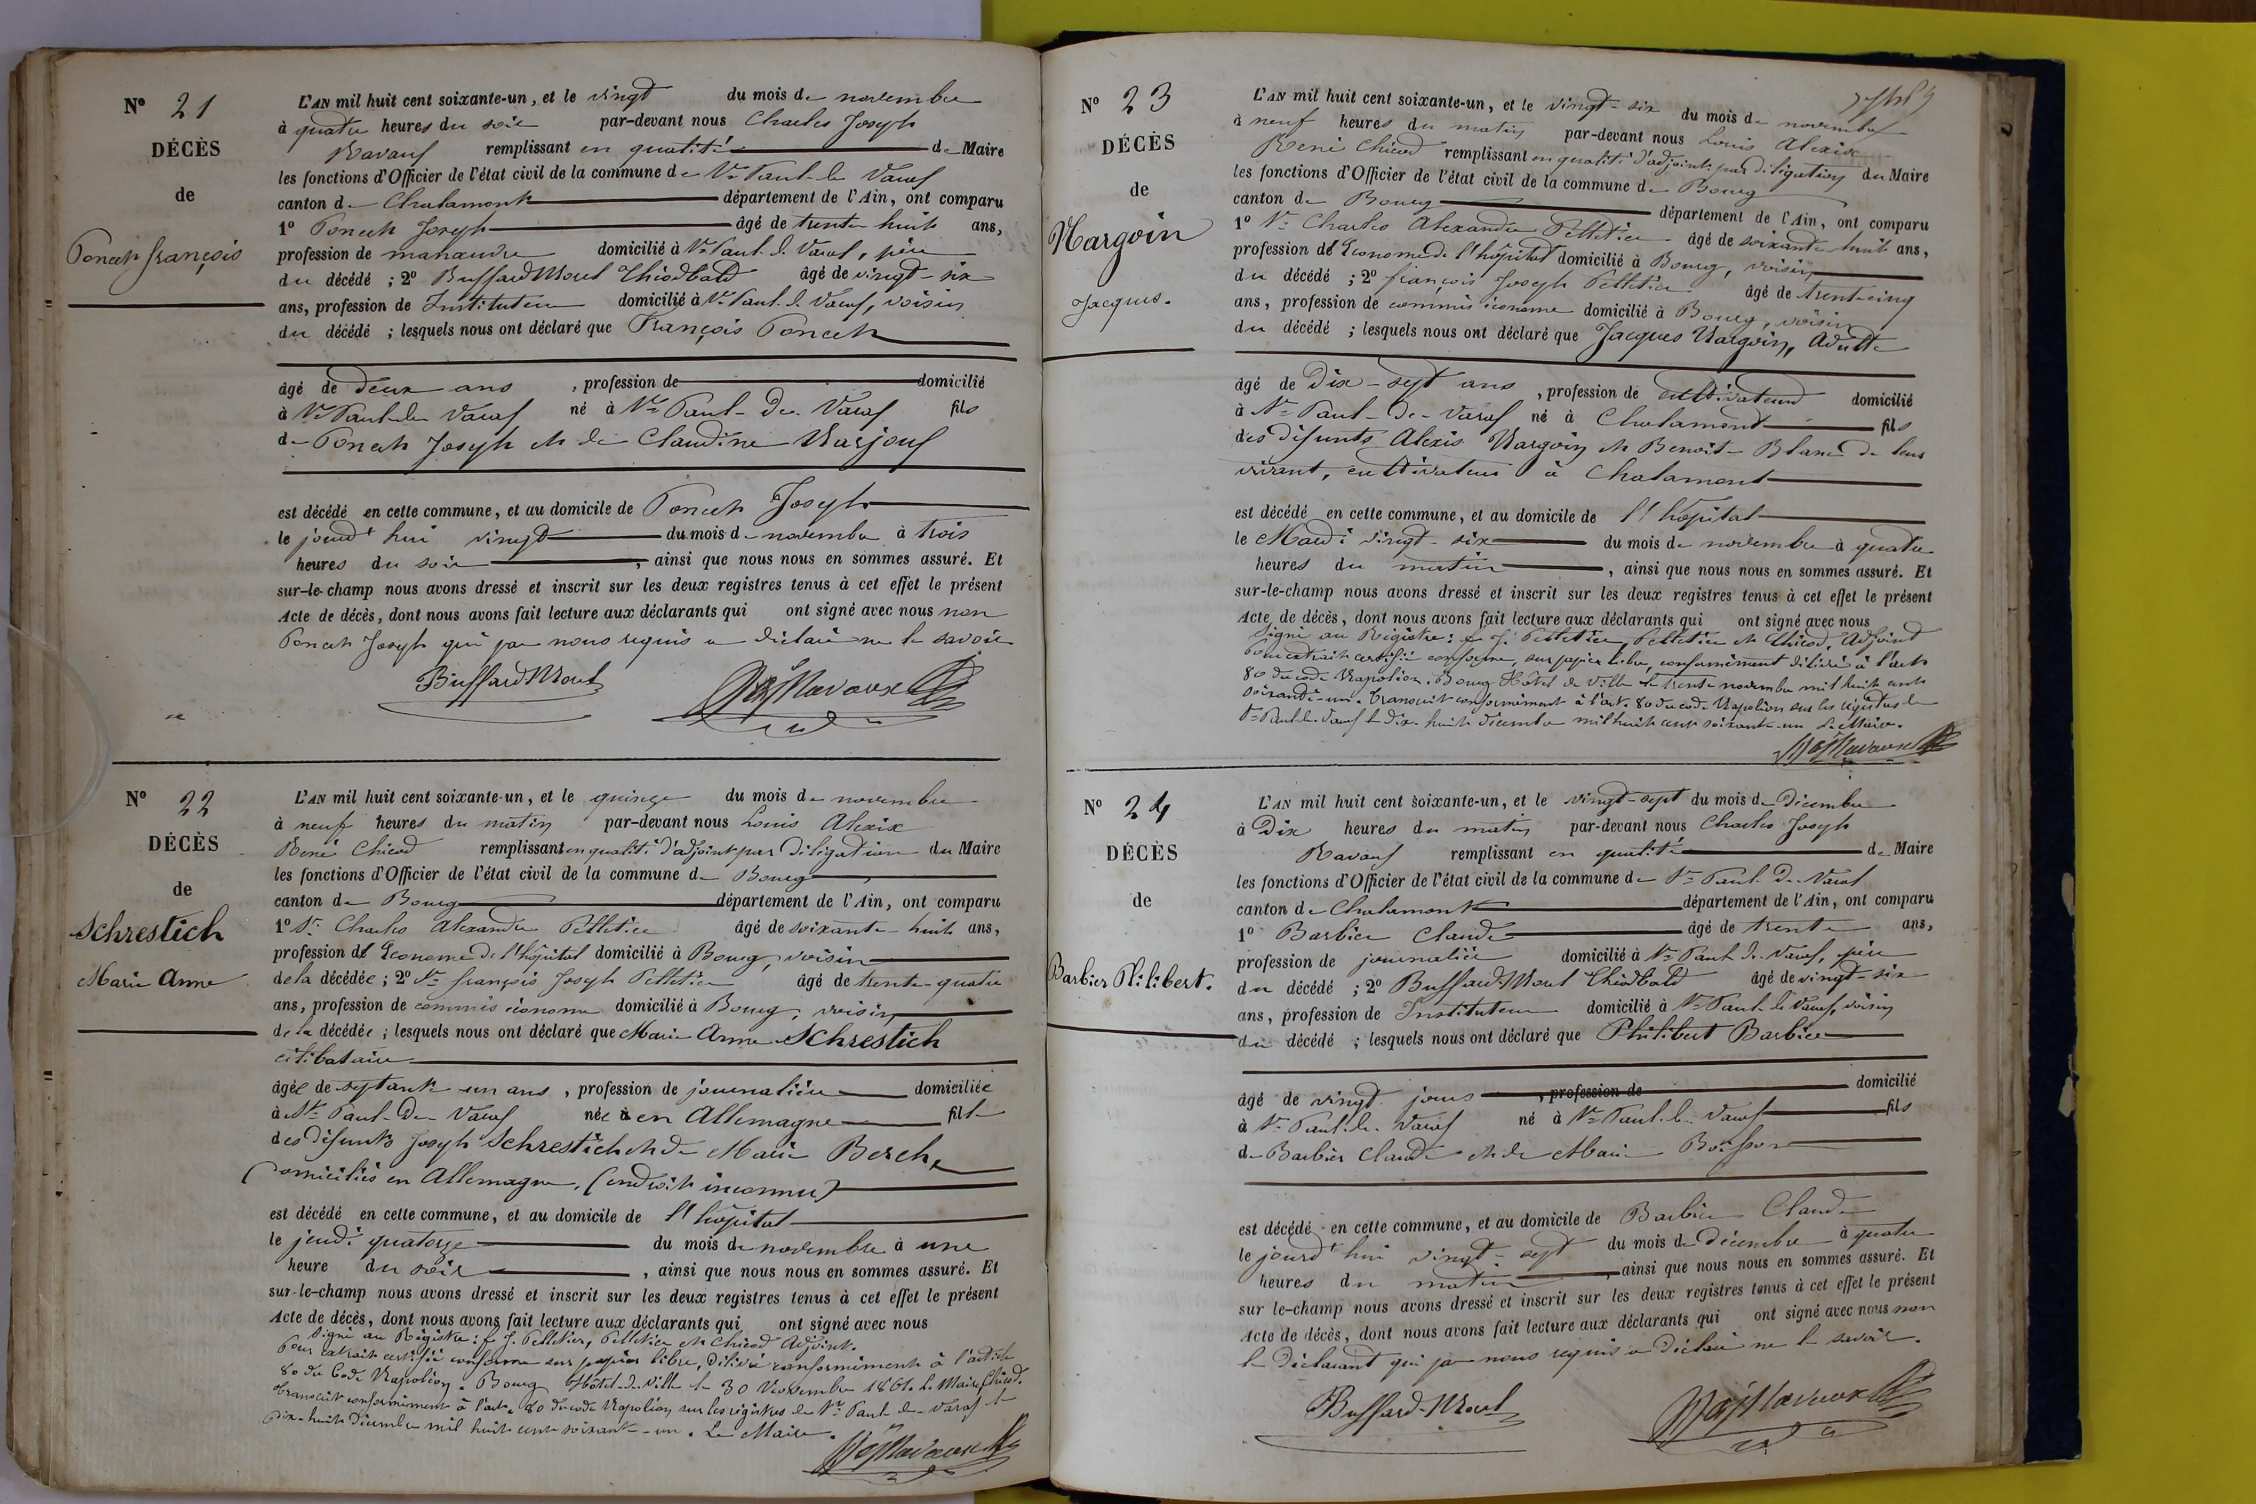 N° 21
DÉCÈS
de
Poncet françois
L'AN mil huit cent soixante-un, et le vingt du mois de novembre
à quatre heures du soir par-devant nous Charles Joseph
Ravaux remplissant en qualité de Maire
les fonctions d'Officier de l'état civil de la commune de St Paul-de Varax
canton de Chalamont département de l'Ain, ont comparu
1° Poncet Joseph âgé de trente huit ans,
profession de manœuvre domicilié à St Paul-de Varax, père
du décédé ; 2° Buffard Morel Théodbald âgé de vingt-six
ans, profession de Instituteur domicilié à St Paul-de Varax, voisin
du décédé ; lesquels nous ont déclaré que François Poncet
âgé de deux ans , profession de domicilié
à St Paul-de Varax né à St Paul-de-Varax fils
de Poncet Joseph et de Claudine
est décédé en cette commune, et au domicile de Poncet Joseph
le jourd'hui vingt du mois de novembre à trois
heures du soir , ainsi que nous nous en sommes assuré. Et
sur-le-champ nous avons dressé et inscrit sur les deux registres tenus à cet effet le présent
Acte de décès, dont nous avons fait lecture aux déclarants qui ont signé avec nous non
Poncet Joseph qui par nous requis a déclaré ne le savoir
Buffard Morel
N° 22
DÉCÈS
de
Schrestich
Marie Anne
L'AN mil huit cent soixante-un, et le quinze du mois de novembre
à neuf heures du matin par-devant nous Louis Alexis
René Chicod remplissant en qualité d'adjoint par délégation du Maire
les fonctions d'Officier de l'état civil de la commune de Bourg
canton de Bourg département de l'Ain, ont comparu
1° Sr Charles Alexandre Pelletier âgé de soixante-huit ans,
profession d'Econome de l'hôpital domicilié à Bourg, voisin
de la décédée ; 2° Sr françois Joseph Pelletier âgé de trente-quatre
ans, profession de commis économe domicilié à Bourg, voisin
de la décédée ; lesquels nous ont déclaré que Marie Anne Schrestich
célibataire
âgée de septante un ans , profession de journalière domiciliée
à St Paul-De-Varax née en Allemagne fille
des défunts Joseph Schrestich et de Marie Berch,
Domiciliés en Allemagne, (endroit inconnu)
est décédé en cette commune, et au domicile de l'hôpital
le jeudi quatorze du mois de novembre à une
heure du soir , ainsi que nous nous en sommes assuré. Et
sur-le-champ nous avons dressé et inscrit sur les deux registres tenus à cet effet le présent
Acte de décès, dont nous avons fait lecture aux déclarants qui ont signé avec nous
Signé au Registre: f. J. Pelletier, Pelletier et Chicod Adjoint.
Pour extrait certifié conforme sur papier libre, délivré conformément à l'article
80 du Code Napoléon. Bourg Hôtel-de-Ville le 30 Novembre 1861. Le Maire Chicod.
Transcrit conformément à l'art. 80 du code Napoléon sur les registres de St Paul-de-Varax le
Dix-huit Décembre mil huit cent soixante-un. Le Maire.
N° 23
DÉCÈS
de
Margoin
Jacques.
L'AN mil huit cent soixante-un, et le vingt-six du mois de novembre
à neuf heures du matin par-devant nous Louis Alexis
René Chicod remplissant en qualité d'adjoint par délégation du Maire
les fonctions d'Officier de l'état civil de la commune de Bourg
canton de Bourg département de l'Ain, ont comparu
1° Sr Charles Alexandre Pelletier âgé de soixante-huit ans,
profession d'Econome de l'hôpital domicilié à Bourg, voisin
du décédé ; 2° françois Joseph Pelletier âgé de trente-cinq
ans, profession de commis économe domicilié à Bourg, voisin
du décédé ; lesquels nous ont déclaré que Jacques Margoin, Adulte
âgé de Dix-sept ans , profession de cultivateur domicilié
à St Paul-de-Varax né à Chalamont fils
des défunts Alexis Margoin et Benoite Blanc de leur
vivant, cultivateurs à Chalamont
est décédé en cette commune, et au domicile de l'hôpital
le Mardi vingt-six du mois de novembre à quatre
heures du matin , ainsi que nous nous en sommes assuré. Et
sur-le-champ nous avons dressé et inscrit sur les deux registres tenus à cet effet le présent
Acte de décès, dont nous avons fait lecture aux déclarants qui ont signé avec nous
Signé au Registre: f. J. Pelletier, Pelletier et Chicod, Adjoint
Pour extrait certifié conforme, sur papier libre, conformément délivré à l'art.
80 du code Napoléon. Bourg Hôtel de Ville le trente novembre mil huit cent
soixante-un. Transcrit conformément à l'art. 80 du code Napoléon sur les registres de
St Paul-de-Varax le dix-huit Décembre mil huit cent soixante-un Le Maire.
N° 24
DÉCÈS
de
Barbier Philibert.
L'AN mil huit cent soixante-un, et le vingt-sept du mois de Décembre
à Dix heures du matin par-devant nous Charles Joseph
Ravaux remplissant en qualité de Maire
les fonctions d'Officier de l'état civil de la commune de St Paul-De-Varax
canton de Chalamont département de l'Ain, ont comparu
1° Barbier Claude âgé de trente ans,
profession de journalier domicilié à St Paul-de-Varax, père
du décédé ; 2° Buffard-Morel Théodbald âgé de vingt-six
ans, profession de Instituteur domicilié à St Paul-de Varax, voisin
du décédé ; lesquels nous ont déclaré que Philibert Barbier
âgé de vingt jours , profession de domicilié
à St Paul-de-Varax né à St Paul-de-Varax fils
de Barbier Claude et de Marie Boisson
est décédé en cette commune, et au domicile de Barbier Claude
le jourd'hui vingt-sept du mois de Décembre à quatre
heures du matin , ainsi que nous nous en sommes assuré. Et
sur le-champ nous avons dressé et inscrit sur les deux registres tenus à cet effet le présent
Acte de décès, dont nous avons fait lecture aux déclarants qui ont signé avec nous non
le Déclarant qui par nous requis a déclaré ne le savoir.
Buffard-Morel